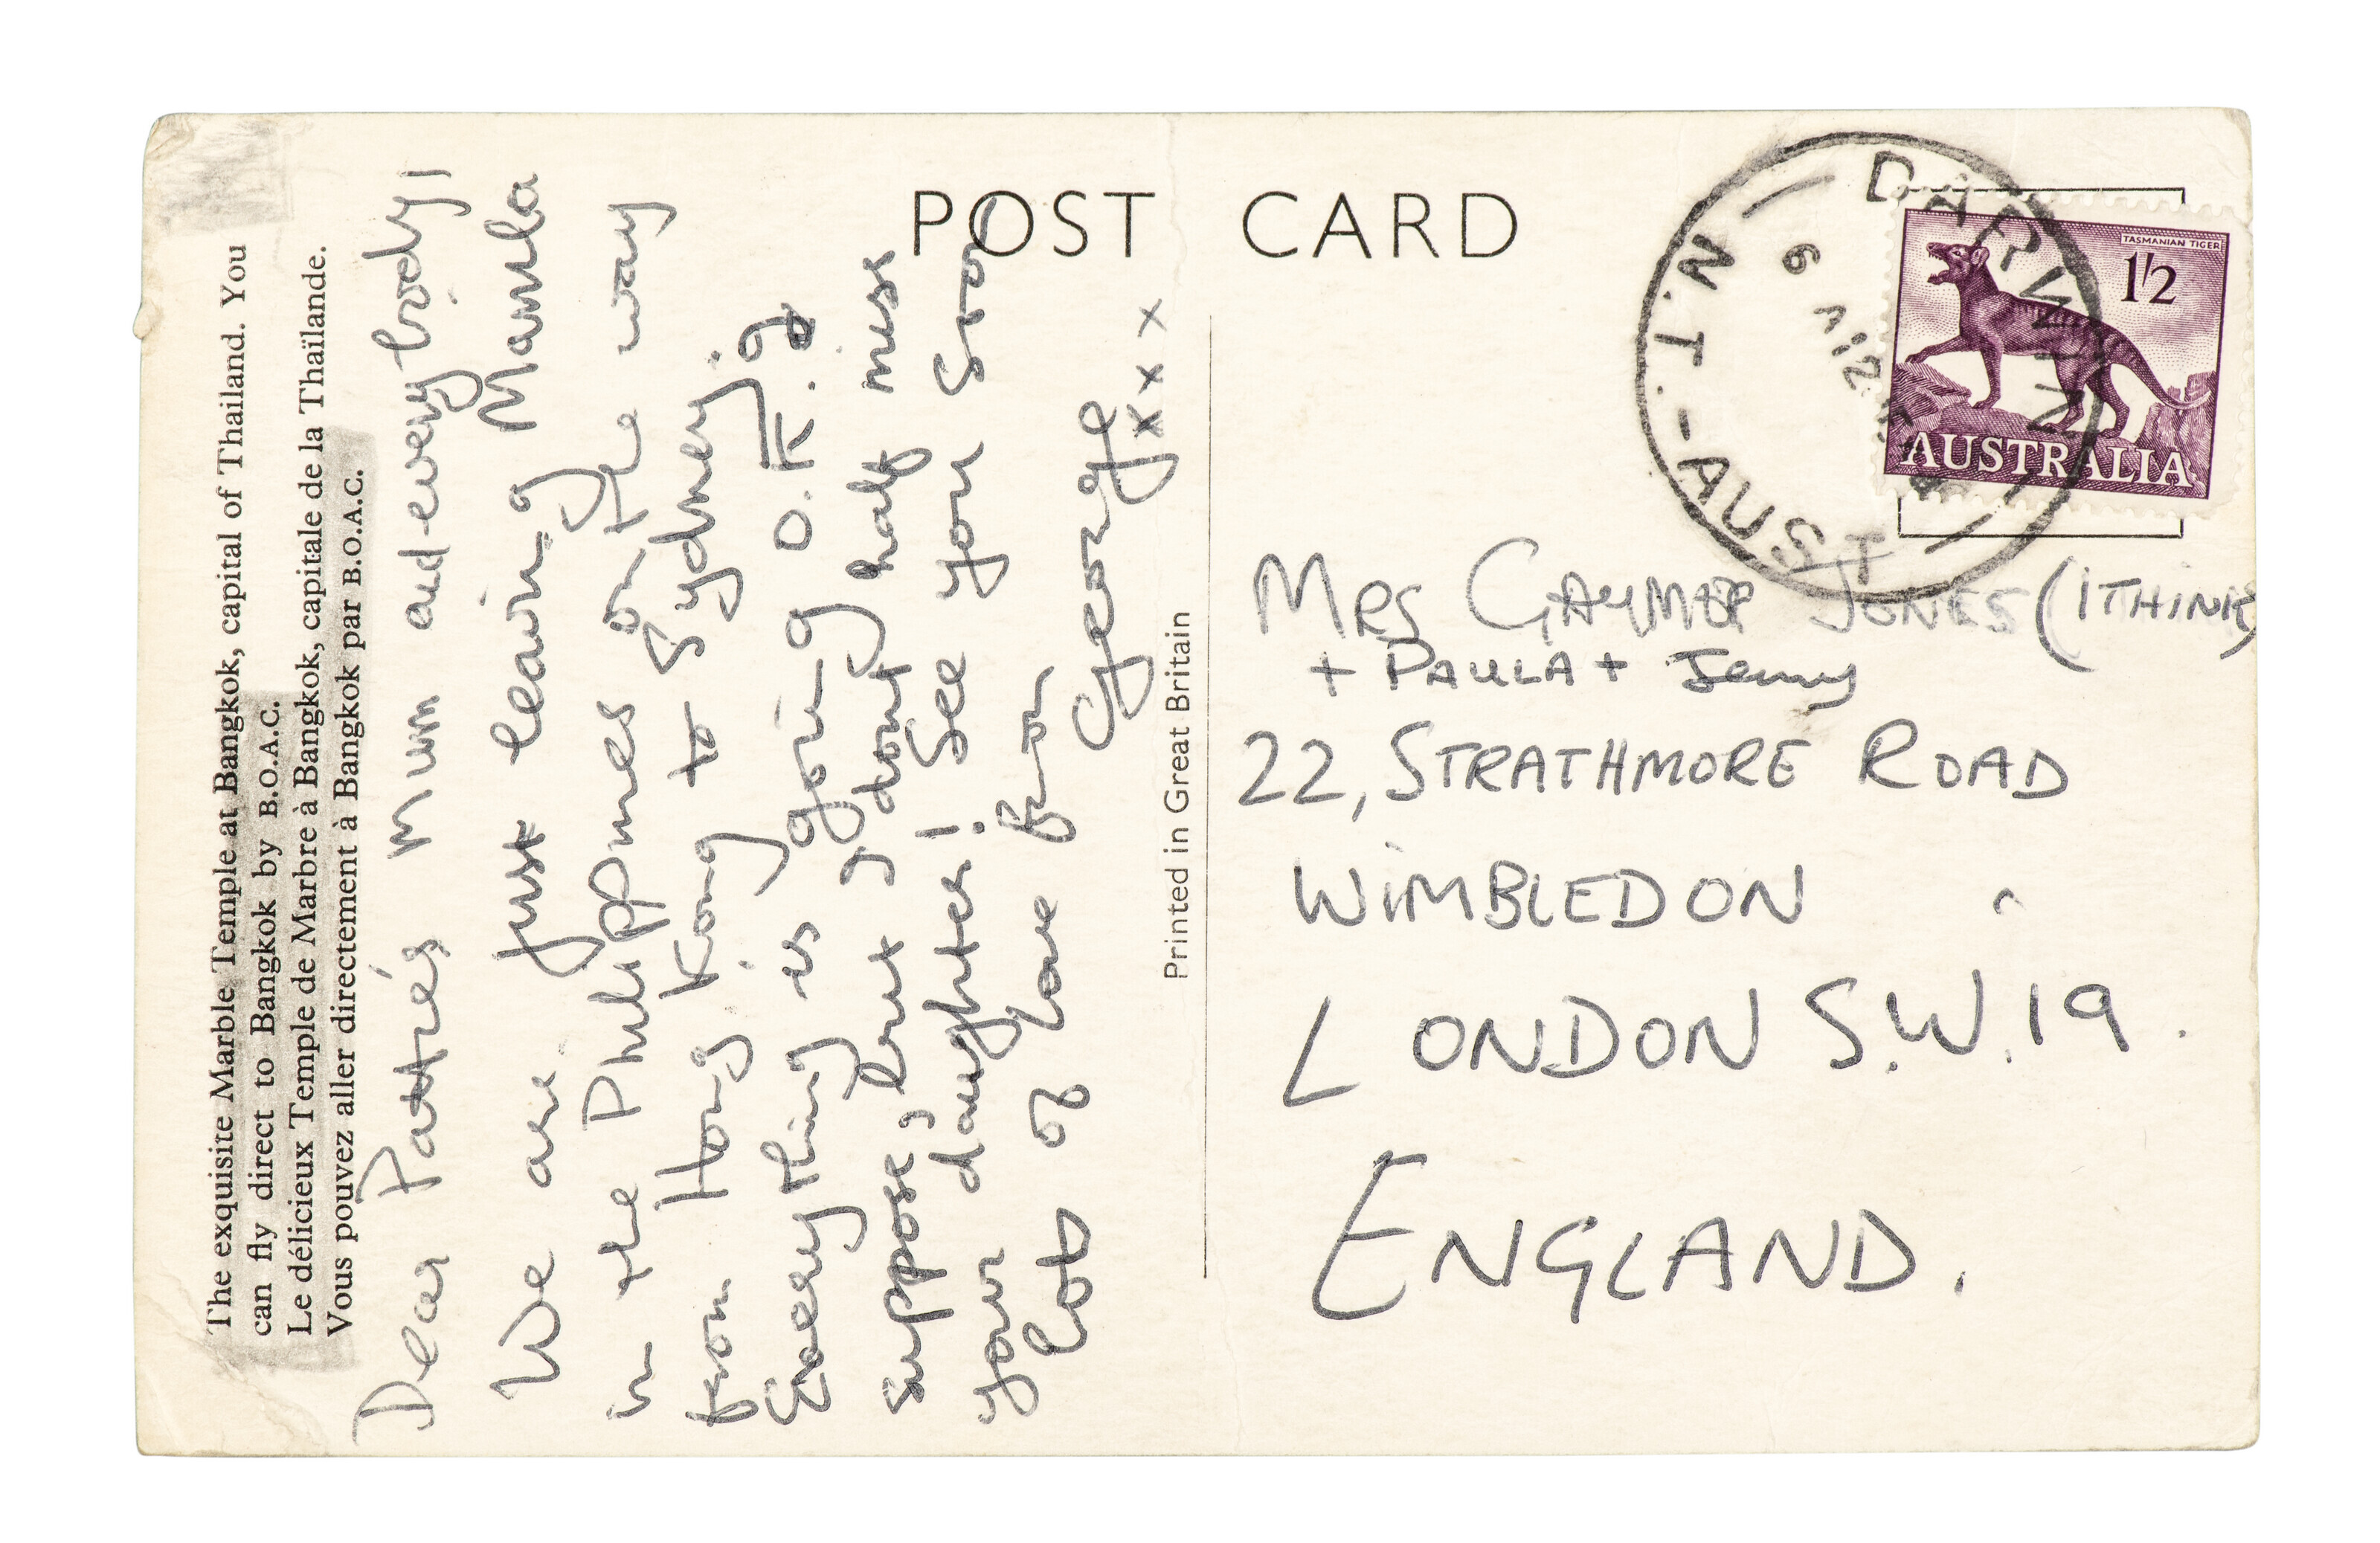 The exquisite Marble Temple at Bangkok, capital of Thailand. You
can fly direct to Bangkok by B.O.A.C.
Le délicieux Temple de Marbre à Bangkok, capitale de la Thaïlande.
Vous pouvez aller directement à Bangkok par B.O.A.C.
Dear Pattie's mum and everybody,
We are just leaving Manila
in the Philippines on the way
from Hong Kong to Sydney.
Everything is going O.K. &
suppose, but I dont half miss
your daughter! See you soon
lots of love from
George
x x x
Printed in Great Britain
POST CARD
DARWIN
N.T.-AUST
TASMANIAN TIGER
1/2
AUSTRALIA
MRS JONES (I THINK)
+ PAULA + Jenny
22, STRATHMORE ROAD
WIMBLEDON
LONDON S.W.19.
ENGLAND.